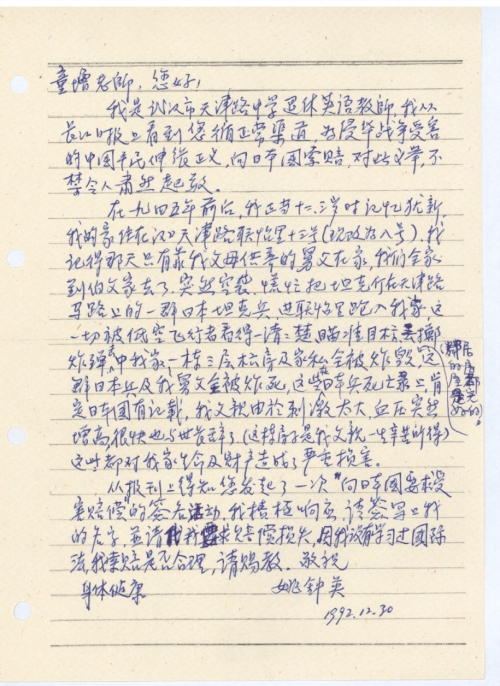 童增老师，您好！
我是武汉市天津路中学退休英语教师，我从
长江日报上看到您循正常渠道，为侵华战争受害
的中国平民伸张正义，向日本国索赔，对此义举，不
禁令人肃然起敬。
在一九四五年前后，我正当十二、三岁时记忆犹新，
我的家住在汉口天津路联怡里十三号(现改为八号)，我
记得那天只有靠我父母供奉的舅父在家，我们全家
到伯父家去了，突然空袭，慌忙把坦克停在天津路
马路上的一群日本坦克兵，进联怡里跑入我家，这
一切被低空飞行者看得一清二楚，瞄准目标，掷
炸弹，中我家一栋三层楼房及家私全被炸毁，这
群日本兵及我舅父全被炸死，这些日本兵死亡录上肯
定日本国有记载，我父亲由於刺激太大，血压突然
增高很快也与世长辞了(这栋房子是我父亲一生辛苦所得)
这些都对我家生命及财产造成了严重损害。
从报刊上得知您发起了一次“向日本国要求受
害赔偿”的签名活动，我积极响应，请签署上我
的名字，并请代我要求赔偿损失，因我没有学习过国际
法，我索赔是否合理，请赐教。敬祝
身体健康
姚钟英
1992.12.30